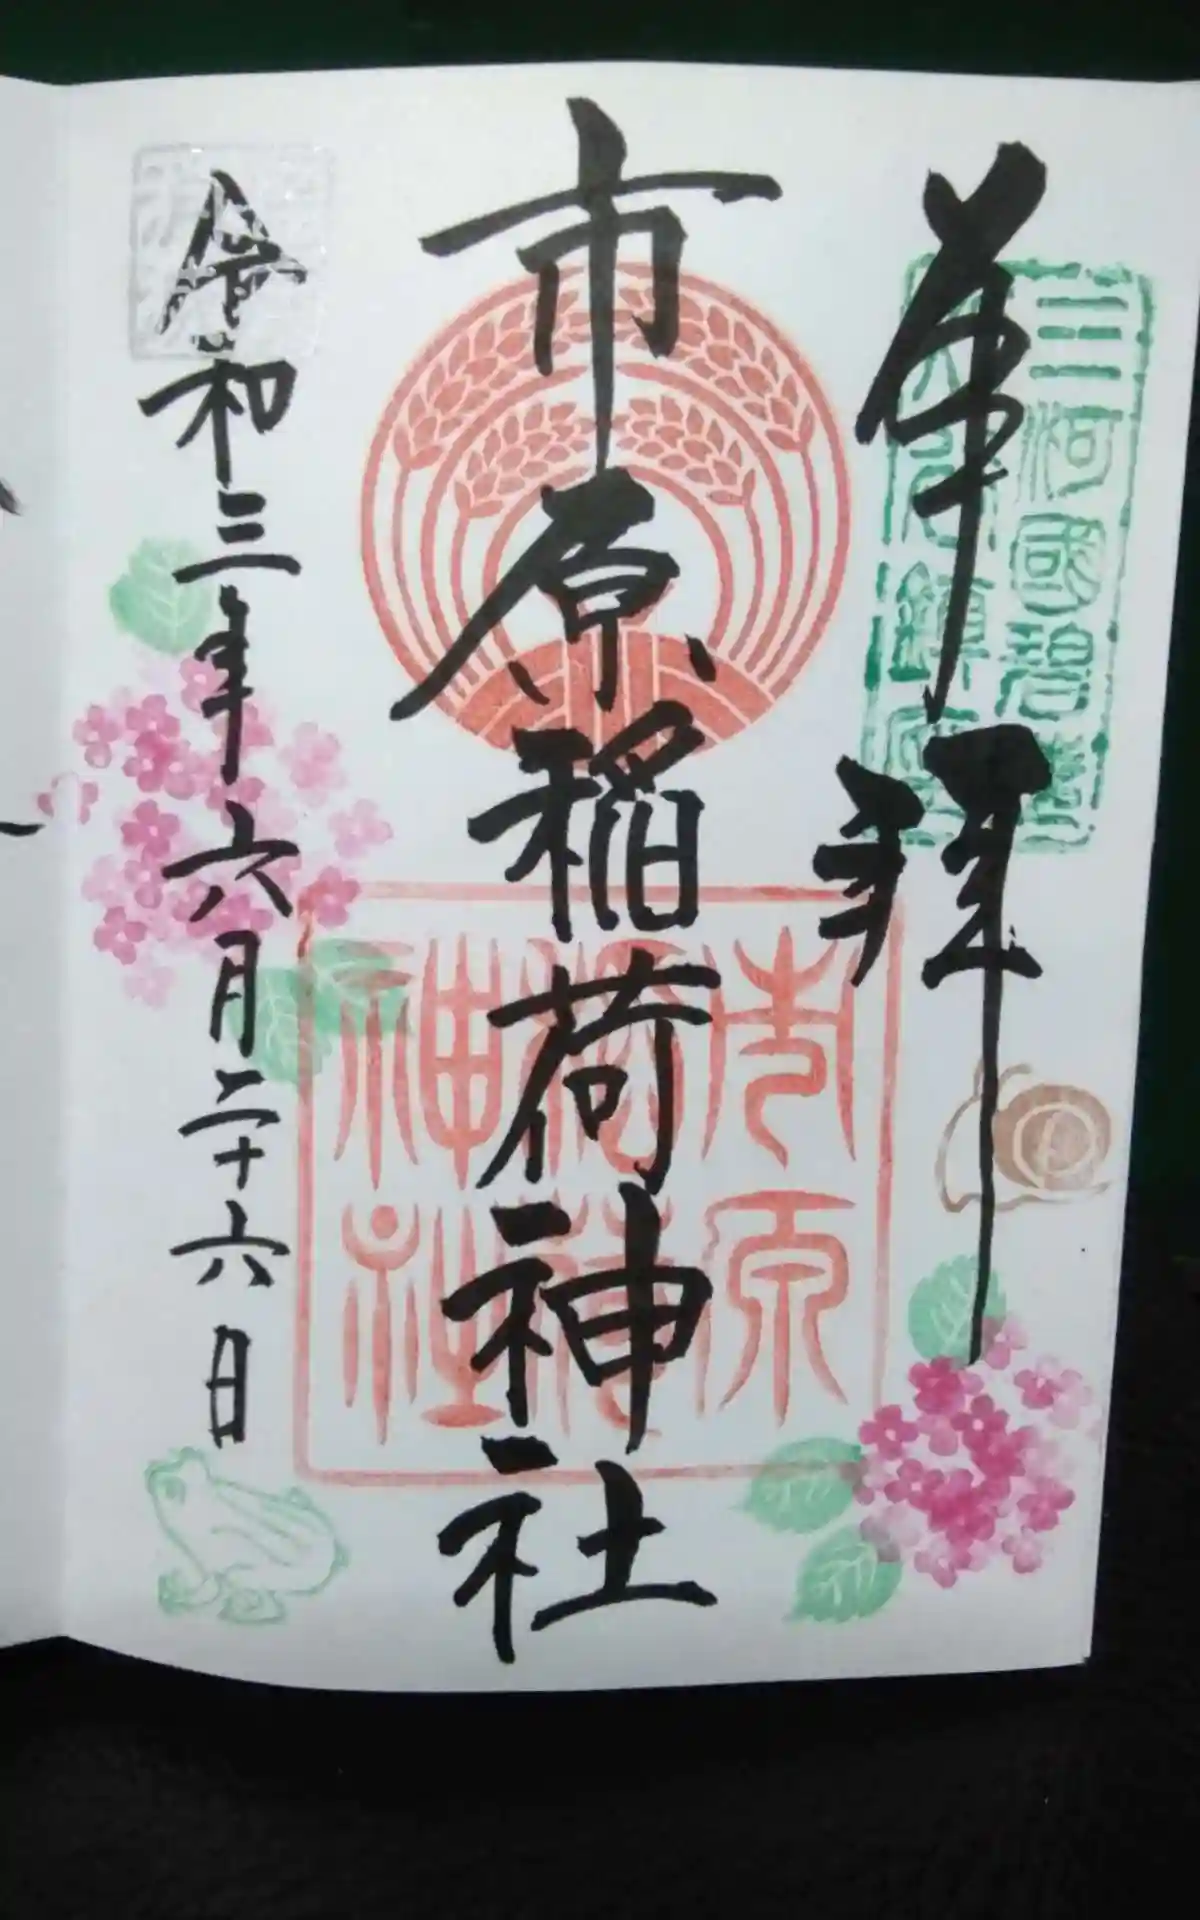 奉拝
三河國碧海
市原稲荷神社
市原
稲荷
神社
令和三年六月二十六日